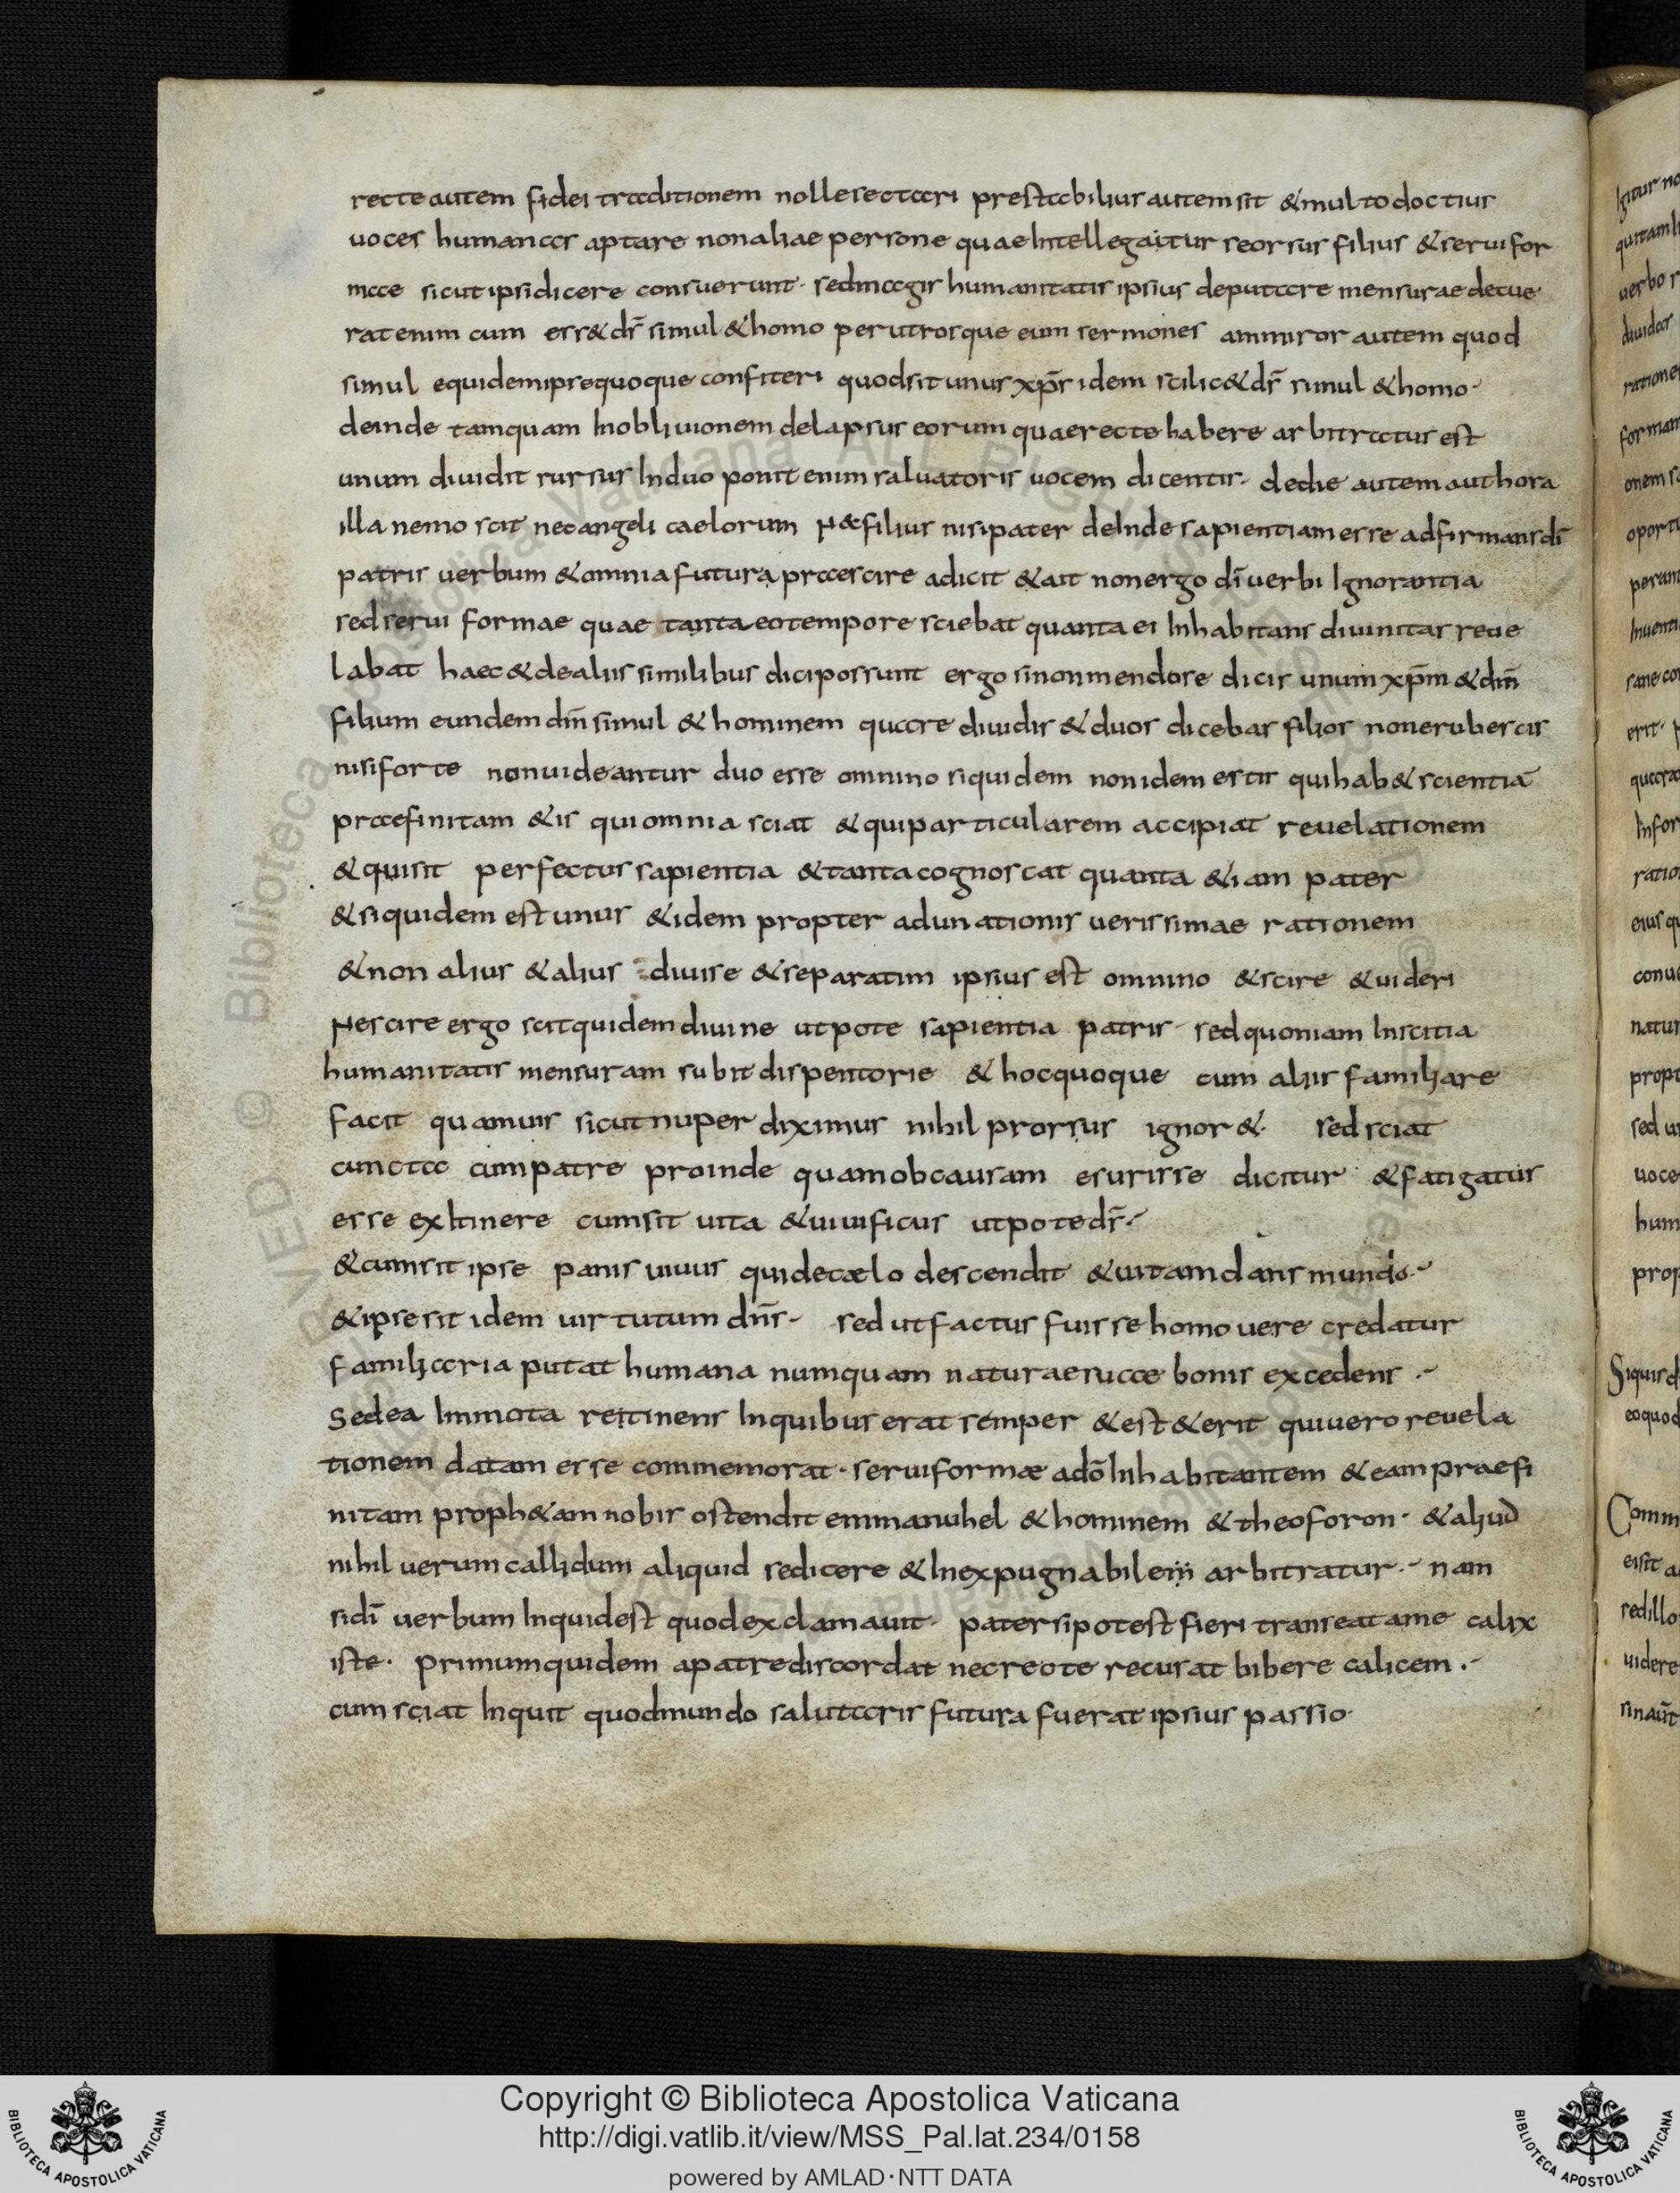 recteautem fidei traditionem nollesectari prestabiliusautemsit &multodoctius
uoces humanas aptare nonaliae persone quaeIntellegaitur seorsus filius &seruifor
mae sicutipsidicere consuerunt· sedmagis humanitatis ipsius deputare mensuraedecue
ratenim cum ess& dr̄ simul &homo perutrosque eum sermones ammiror autem quod
simul equidemipsequoque confiteri quodsitunus xp̄s idem scilic& dr̄ simul &homo·
deinde tamquam Inobliuionem delapsus eorum quaerecte habere arbitratus est
unum diuidit rursus Induo ponit enim saluatoris uocem dicentis· dedie autem authora
illa nemo scit nec angeli caelorum Necfilius nisipater deInde sapientiam esse adfirmans dī
patris uerbum &omnia futura praescire adicit &ait nonergo dī uerbi Ignorantia
sed serui formae quae tanta eotempore sciebat quanta ei Inhabitans diuinitas reue
labat haec &dealiis similibus dicipossunt ergo sinonmendose dicis unum xp̄m &dm̄
filium eundem dm̄ simul &hominem quare diuidis &duos dicebas filios nonerubescis
nisiforte nonuideantur duo esse omnino siquidem nonidem estis quihab& scientiā
praefinitam &is quiomnia sciat &quiparticularem accipiat reuelationem
&quisit perfectus sapientia &tantacognoscat quanta &iam pater
&siquidem est unus &idem propter adunationis uerissimae rationem
&non alius &alius diuise &separatim ipsius est omnino &scire &uideri
Nescire ergo scitquidem diuine utpote sapientia patris· sedquoniam Inscitia
humanitatis mensuram subit dispentorie &hocquoque cum aliis familiare
facit quamuis sicutnuper diximus nihil prorsus ignor&· sed sciat
cuncta cumpatre proinde quamobcausam esurisse dicitur &fatigatus
esse exItinere cumsit uita &uiuificus utpotedr̄·
&cumsit ipse panis uiuus quidecælo descendit &uitamdans mundo·
&ipsesit idem uirtutum dn̄s· sed utfactus fuisse homouere credatur
familiaria putat humana numquam naturaesuae bonis excedens·
Sedea Inmota retinens Inquibus erat semper &est&erit quiuero reuela
tionem datam esse commemorat· seruiformæ adō Inhabitantem &eam praefi
nitam proph&am nobis ostendit emmanuhel &hominem &theoforon· &aliud
nihil uerum callidum aliquid sedicere &Inexpugnabilem arbitratur· nam
sidī uerbum Inquidest quodexclamauit· pater sipotest fieri transeatame calix
iste· primumquidem apatrediscordat necrecte recusat bibere calicem·
cum sciat Inquit quodmundo salutaris futura fuerat ipsius passio·
Copyright © Biblioteca Apostolica Vaticana
http://digi.vatlib.it/view/MSS_Pal.lat.234/0158
powered by AMLAD·NTT DATA
BIBLIOTECA APOSTOLICA VATICANA
BIBLIOTECA APOSTOLICA VATICANA